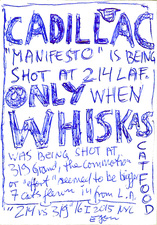 CADILLAC
"MANIFESTO" IS BEING
SHOT AT 214 LAF.
ONLY WHEN
WHISKAS
CAT FOOD
WAS BEING SHOT AT
319 Grand, the commotion
or "effort" seemed to be bigger
7 cats flown in from L.A.
"2M is 3/9" 16 I 2015 NYC